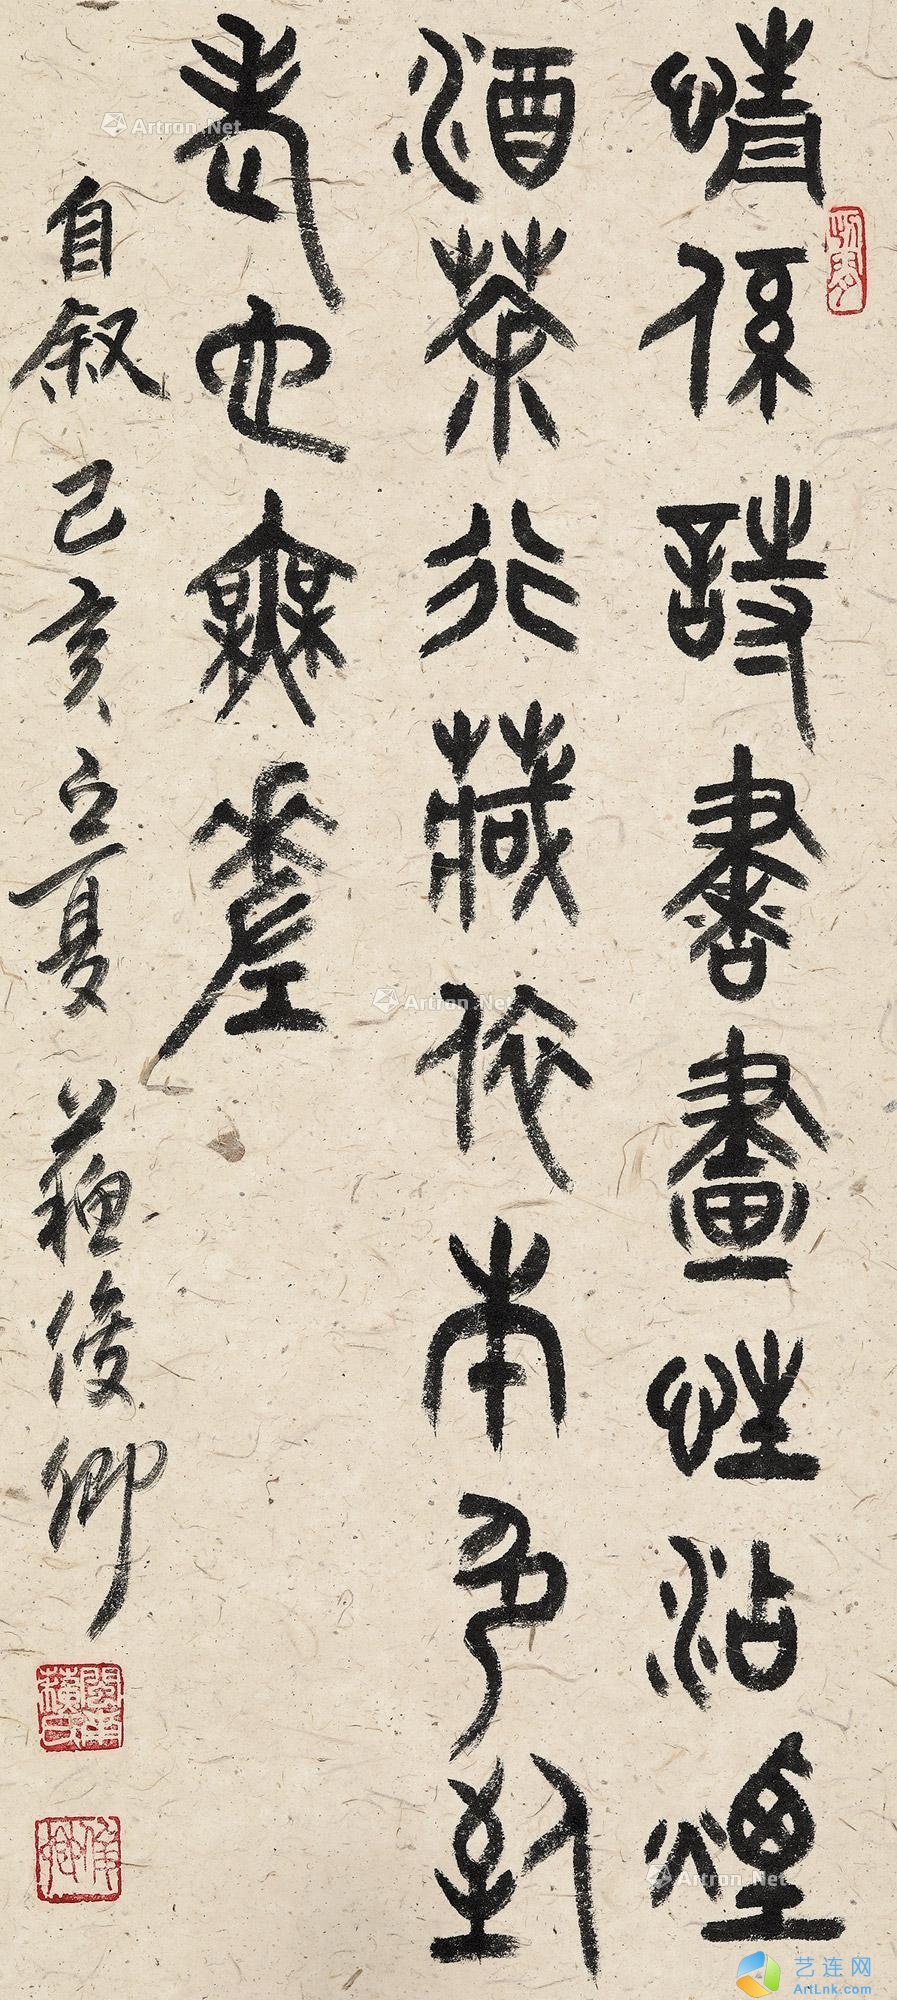 情係詩書畫性沾煙
酒茶行藏依本色到
老也無差
自叙 己亥立夏 蘇俊卿
Artron.Net
Artron.Net
Artron.Net
艺连网
ArtLnk.com